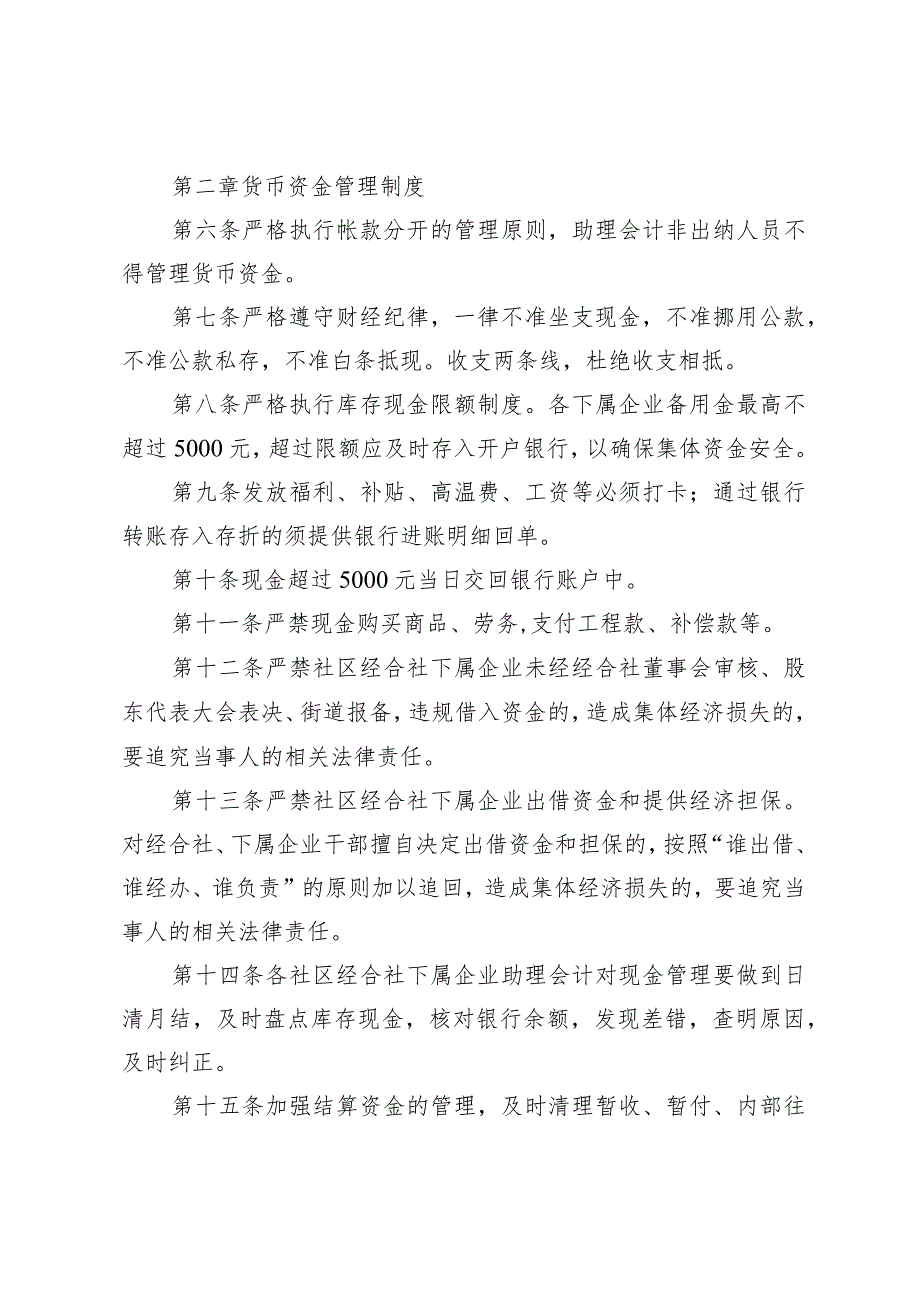 第二章货币资金管理制度
第六条严格执行帐款分开的管理原则，助理会计非出纳人员不
得管理货币资金。
第七条严格遵守财经纪律，一律不准坐支现金，不准挪用公款，
不准公款私存，不准白条抵现。收支两条线，杜绝收支相抵。
第八条严格执行库存现金限额制度。各下属企业备用金最高不
超过 5000 元，超过限额应及时存入开户银行，以确保集体资金安全。
第九条发放福利、补贴、高温费、工资等必须打卡；通过银行
转账存入存折的须提供银行进账明细回单。
第十条现金超过 5000 元当日交回银行账户中。
第十一条严禁现金购买商品、劳务,支付工程款、补偿款等。
第十二条严禁社区经合社下属企业未经经合社董事会审核、股
东代表大会表决、街道报备，违规借入资金的，造成集体经济损失的，
要追究当事人的相关法律责任。
第十三条严禁社区经合社下属企业出借资金和提供经济担保。
对经合社、下属企业干部擅自决定出借资金和担保的，按照“谁出借、
谁经办、谁负责”的原则加以追回，造成集体经济损失的，要追究当
事人的相关法律责任。
第十四条各社区经合社下属企业助理会计对现金管理要做到日
清月结，及时盘点库存现金，核对银行余额，发现差错，查明原因，
及时纠正。
第十五条加强结算资金的管理，及时清理暂收、暂付、内部往